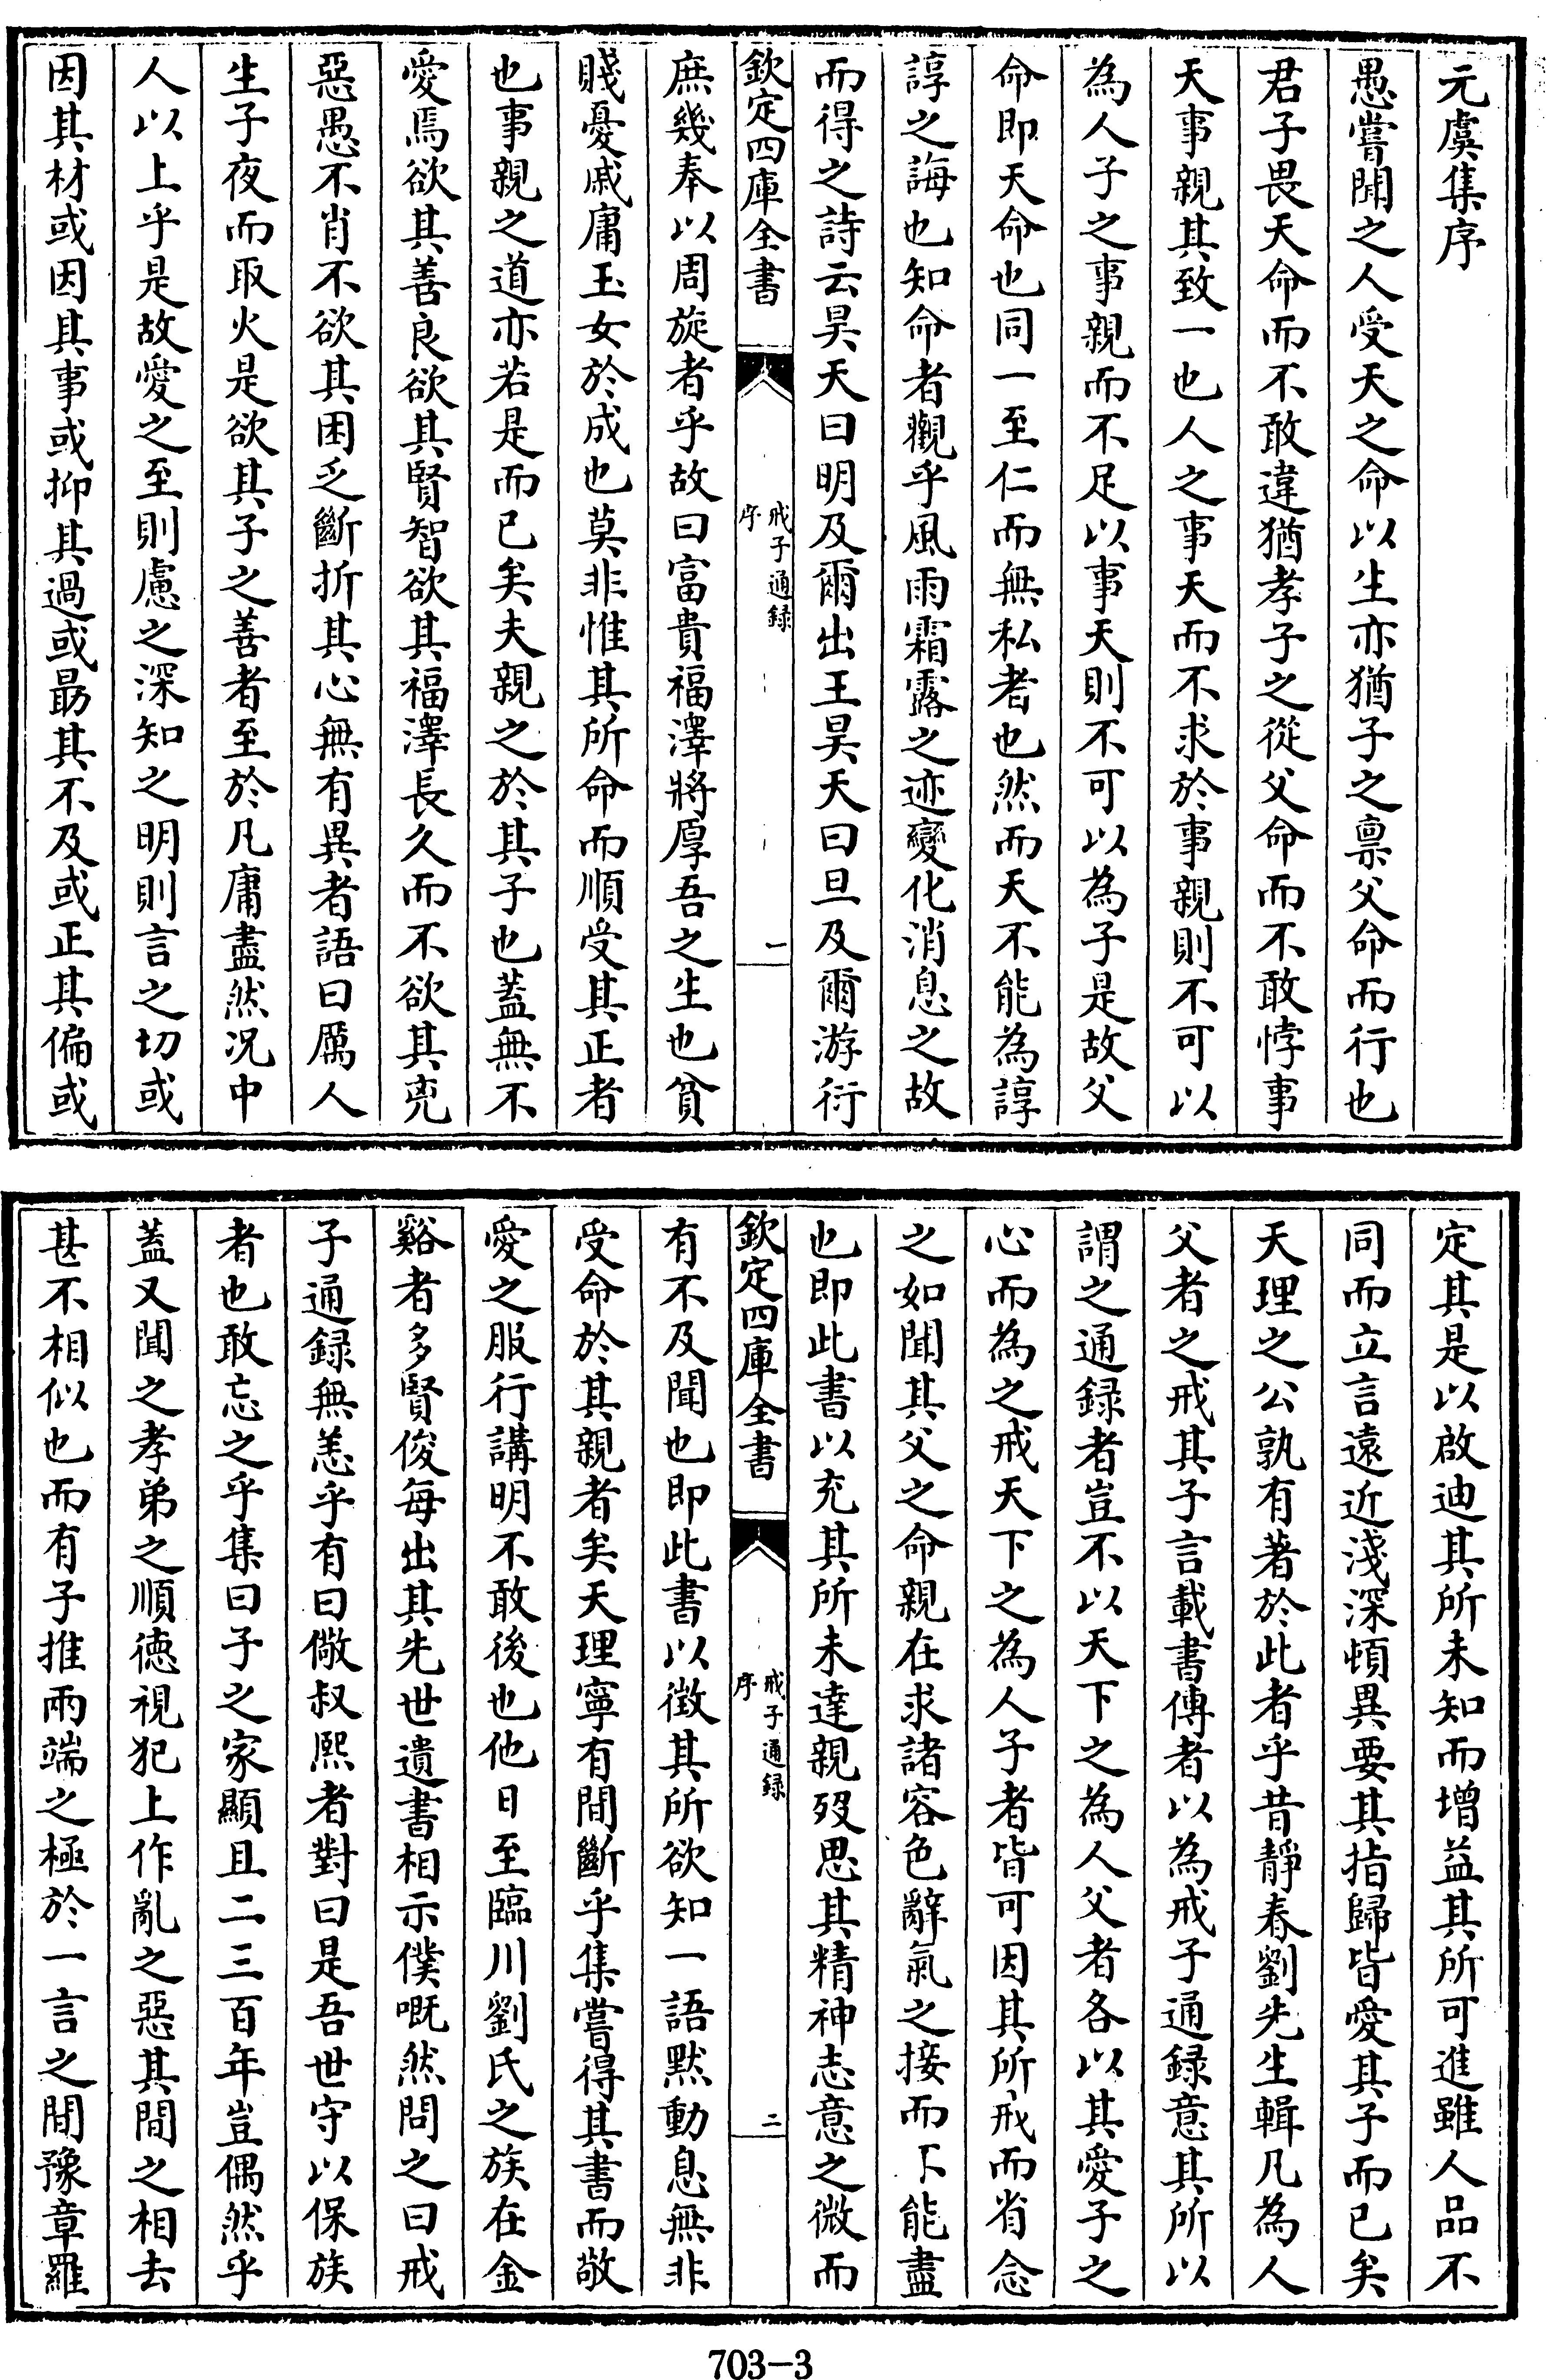 元虞集序
愚嘗聞之人受天之命以生亦猶子之禀父命而行也
君子畏天命而不敢違猶孝子之從父命而不敢悖事
天事親其致一也人之事天而不求於事親則不可以
為人子之事親而不足以事天則不可以為子是故父
命即天命也同一至仁而無私者也然而天不能為諄
諄之誨也知命者觀乎風雨霜露之迹變化消息之故
而得之詩云昊天曰明及爾出王昊天曰旦及爾游衍
欽定四庫全書
戒子通録
序
一
庶幾奉以周旋者乎故曰富貴福澤將厚吾之生也貧
賤憂戚庸玉女於成也莫非惟其所命而順受其正者
也事親之道亦若是而已矣夫親之於其子也蓋無不
愛焉欲其善良欲其賢智欲其福澤長久而不欲其兇
惡愚不肖不欲其困乏斷折其心無有異者語曰厲人
生子夜而取火是欲其子之善者至於凡庸盡然况中
人以上乎是故愛之至則慮之深知之明則言之切或
因其材或因其事或抑其過或勗其不及或正其偏或
定其是以啟迪其所未知而增益其所可進雖人品不
同而立言遠近淺深頓異要其指歸皆愛其子而已矣
天理之公孰有著於此者乎昔靜春劉先生輯凡為人
父者之戒其子言載書傳者以為戒子通録意其所以
謂之通録者豈不以天下之為人父者各以其愛子之
心而為之戒天下之為人子者皆可因其所戒而省念
之如聞其父之命親在求諸容色辭氣之接而下能盡
也即此書以充其所未達親歿思其精神志意之微而
欽定四庫全書
戒子通録
序
二
有不及聞也即此書以徴其所欲知一語默動息無非
受命於其親者矣天理寧有間斷乎集嘗得其書而敬
愛之服行講明不敢後也他日至臨川劉氏之族在金
谿者多賢俊每出其先世遺書相示僕嘅然問之曰戒
子通録無恙乎有曰儆叔熙者對曰是吾世守以保族
者也敢忘之乎集曰子之家顯且二三百年豈偶然乎
蓋又聞之孝弟之順徳視犯上作亂之惡其間之相去
甚不相似也而有子推兩端之極於一言之間豫章羅
703-3